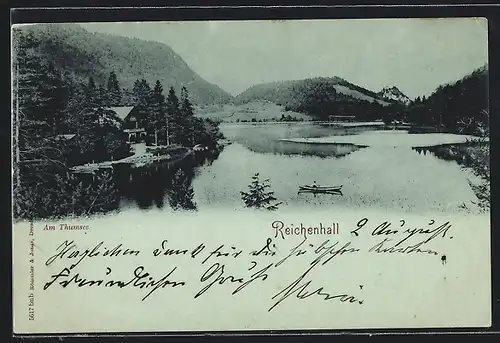 Am Thumsee.
Reichenhall 2 August
Herzlichen Dank für die hübschen Karten
Freundlichen Gruss
5617 Römmler & Jonas, Dresden